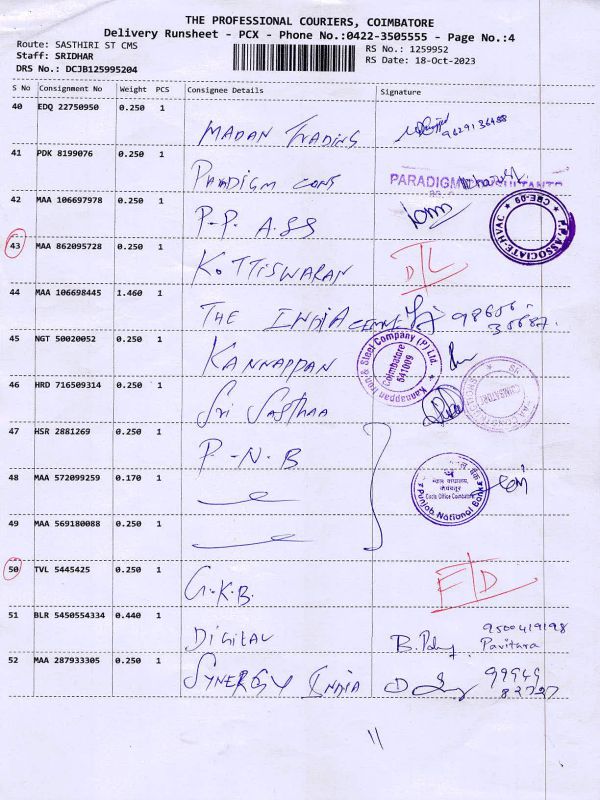 THE PROFESSIONAL COURIERS, COIMBATORE
Delivery Runsheet - PCX - Phone No.:0422-3505555 - Page No.:4
Route: SASTHIRI ST CMS RS No.: 1259952
Staff: SRIDHAR RS Date: 18-Oct-2023
DRS No.: DCJB125995204
S No Consignment No Weight PCS Consignee Details Signature
40 EDQ 22750950 0.250 1
MADAN TRADING 9629136488
41 PDK 8199076 0.250 1
PARADIGM CONS PARADIGM
42 MAA 106697978 0.250 1
P-P. ASS P.P. ASSOCIATE-HVAC * CBE-09 *
43 MAA 862095728 0.250 1
KOTTISWARAN D/L
44 MAA 106698445 1.460 1
THE INDIA CEMENT 98656-
36687.
45 NGT 50020052 0.250 1
KANNAPPAN Kannappan Iron & Steel Company (P) Ltd. Coimbatore 641009
46 HRD 716509314 0.250 1
Sri Sasthaa
47 HSR 2881269 0.250 1
P-N.B
48 MAA 572099259 0.170 1
Punjab National Bank
49 MAA 569180088 0.250 1
50 TVL 5445425 0.250 1
G.K.B. F/D
51 BLR 5450554334 0.440 1
DIGITAL 9500419198
Pavitara
52 MAA 287933305 0.250 1
SYNERGY INDIA 99949
82727
11